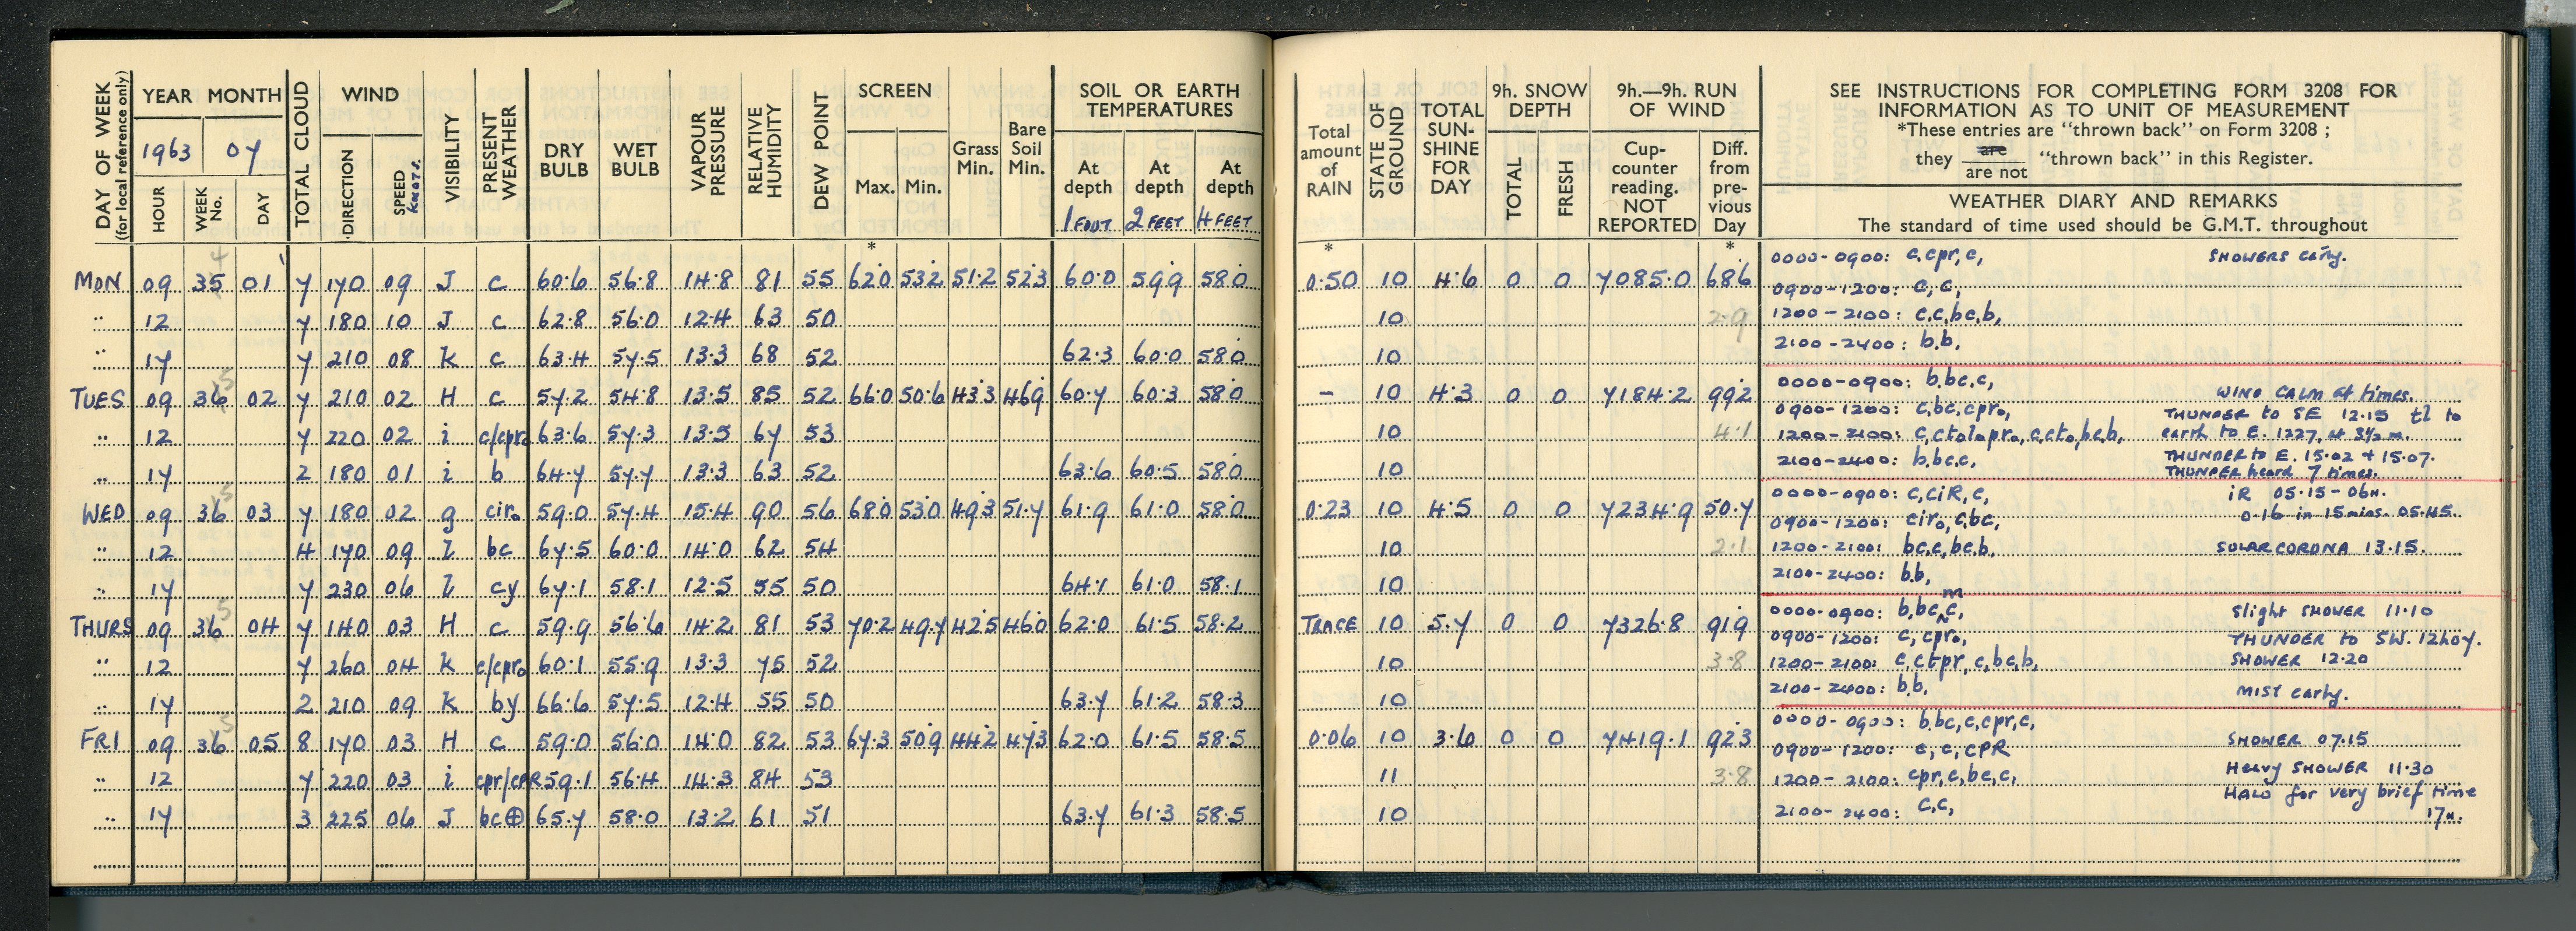 DAY OF WEEK (for local reference only)
YEAR MONTH
1963 07
HOUR WEEK No. DAY
TOTAL CLOUD
WIND
DIRECTION SPEED KNOTS.
VISIBILITY
PRESENT WEATHER
DRY BULB
WET BULB
VAPOUR PRESSURE
RELATIVE HUMIDITY
DEW POINT
SCREEN
Max. Min.
Grass Min.
Bare Soil Min.
SOIL OR EARTH TEMPERATURES
At depth 1 FOOT
At depth 2 FEET
At depth 4 FEET
Total amount of RAIN
STATE OF GROUND
TOTAL SUN-SHINE FOR DAY
9h. SNOW DEPTH
TOTAL FRESH
9h.—9h. RUN OF WIND
Cup-counter reading. NOT REPORTED
Diff. from pre-vious Day
SEE INSTRUCTIONS FOR COMPLETING FORM 3208 FOR
INFORMATION AS TO UNIT OF MEASUREMENT
*These entries are "thrown back" on Form 3208 ;
they are / are not "thrown back" in this Register.
WEATHER DIARY AND REMARKS
The standard of time used should be G.M.T. throughout
* * *
MON 09 35 4 01 7 170 09 J c 60.6 56.8 14.8 81 55 62.0 53.2 51.2 52.3 60.0 59.9 58.0 0.50 10 4.6 0 0 7085.0 68.6
12 7 180 10 J c 62.8 56.0 12.4 63 50 10 2.9
17 7 210 08 K c 63.4 57.5 13.3 68 52 62.3 60.0 58.0 10
0000-0900: c,cpr,c, SHOWERS early.
0900-1200: c,c,
1200-2100: c,c,bc,b,
2100-2400: b,b.
TUES 09 36 5 02 7 210 02 H c 57.2 54.8 13.5 85 52 66.0 50.6 43.3 46.9 60.7 60.3 58.0 - 10 4.3 0 0 7184.2 99.2
12 7 220 02 i c/cpr₀ 63.6 57.3 13.5 67 53 10 4.1
17 2 180 01 i b 64.7 57.7 13.3 63 52 63.6 60.5 58.0 10
0000-0900: b,bc,c, WIND CALM at times.
0900-1200: c,bc,cpr₀, THUNDER to SE 12.15 tl to
1200-2100: c,ct₀l₀pr₀, c,ct₀,bc,b, earth to E. 1227, at 3½ m.
2100-2400: b,bc,c, THUNDER to E. 15.02 + 15.07.
THUNDER heard 7 times.
WED 09 36 5 03 7 180 02 g cir₀ 59.0 57.4 15.4 90 56 68.0 53.0 49.3 51.7 61.9 61.0 58.0 0.23 10 4.5 0 0 7234.9 50.7
12 4 170 09 l bc 67.5 60.0 14.0 62 54 10 2.1
17 7 230 06 l cy 67.1 58.1 12.5 55 50 64.1 61.0 58.1 10
0000-0900: c,ciR,c, iR 05.15-06H.
0900-1200: cir₀,c,bc, 0.16 in 15 mins. 05.45.
1200-2100: bc,c,bc,b, SOLAR CORONA 13.15.
2100-2400: b,b,
THURS 09 36 5 04 7 140 03 H c 59.9 56.6 14.2 81 53 70.2 49.7 42.5 46.0 62.0 61.5 58.2 TRACE 10 5.7 0 0 7326.8 91.9
12 7 260 04 K c/cpr₀ 60.1 55.9 13.3 75 52 10 3.8
17 2 210 09 K by 66.6 57.5 12.4 55 50 63.7 61.2 58.3 10
0000-0900: b,bc,c, m Slight SHOWER 11.10
0900-1200: c, cpr₀, THUNDER to SW. 12h07.
1200-2100: c,ctpr,c,bc,b, SHOWER 12.20
2100-2400: b,b, MIST early.
FRI 09 36 5 05 8 170 03 H c 59.0 56.0 14.0 82 53 67.3 50.9 44.2 47.3 62.0 61.5 58.5 0.06 10 3.6 0 0 7419.1 92.3
12 7 220 03 i cpr/cPR 59.1 56.4 14.3 84 53 11 3.8
17 3 225 06 J bc⊕ 65.7 58.0 13.2 61 51 63.7 61.3 58.5 10
0000-0900: b,bc,c,cpr,c, SHOWER 07.15
0900-1200: c,c,CPR Heavy SHOWER 11.30
1200-2100: cpr,c,bc,c, HALO for very brief time
2100-2400: c,c, 17H.